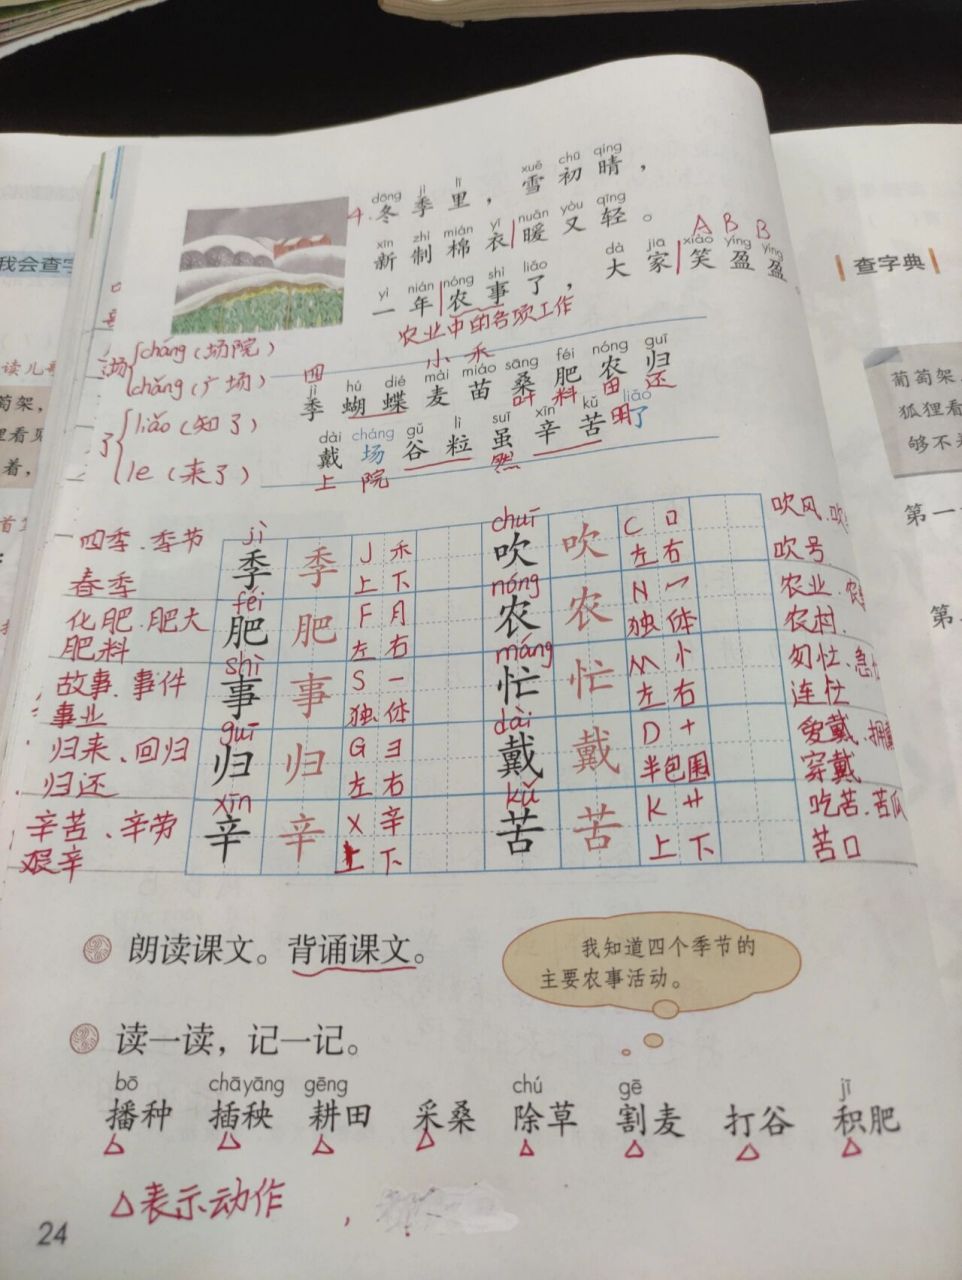 dōng jì lǐ xuě chū qíng
4.冬季里，雪初晴，
xīn zhì mián yī nuǎn yòu qīng
新制棉衣暖又轻。
A B B
yì nián nóng shì liǎo dà jiā xiào yíng yíng
一年农事了，大家笑盈盈
农业中的各项工作
场 cháng（场院）
chǎng（广场）
了 liǎo（知了）
le（来了）
四 小 禾
jì hú dié mài miáo sāng féi nóng guī
季蝴蝶麦苗桑肥农归
叶 料 田 还
dài cháng gǔ lì suī xīn kǔ liǎo
戴场谷粒虽辛苦明了
上 院 然
四季、季节
春季
jì
季 季 J 禾
上下
chuī
吹 吹 C 口
左右
吹风、吹
吹号
化肥、肥大
肥料
féi
肥 肥 F 月
左右
nóng
农 农 N 冖
独体
农业、农
农村
故事、事件
事业
shì
事 事 S 一
独体
máng
忙 忙 M 忄
左右
匆忙、急忙
连忙
归来、回归
归还
guī
归 归 G 彐
左右
dài
戴 戴 D 十
半包围
爱戴、拥戴
穿戴
辛苦、辛劳
艰辛
xīn
辛 辛 X 辛
上下
kǔ
苦 苦 K 艹
上下
吃苦、苦瓜
苦口
朗读课文。背诵课文。
我知道四个季节的
主要农事活动。
读一读，记一记。
bō chā yāng gēng chú gē jī
播种 插秧 耕田 采桑 除草 割麦 打谷 积肥
△ △ △ △ △ △ △ △
△表示动作
24
我会查字
读儿歌
萄架，
里看见
着，
首
查字典
葡萄架
狐狸看
够不
第一
第